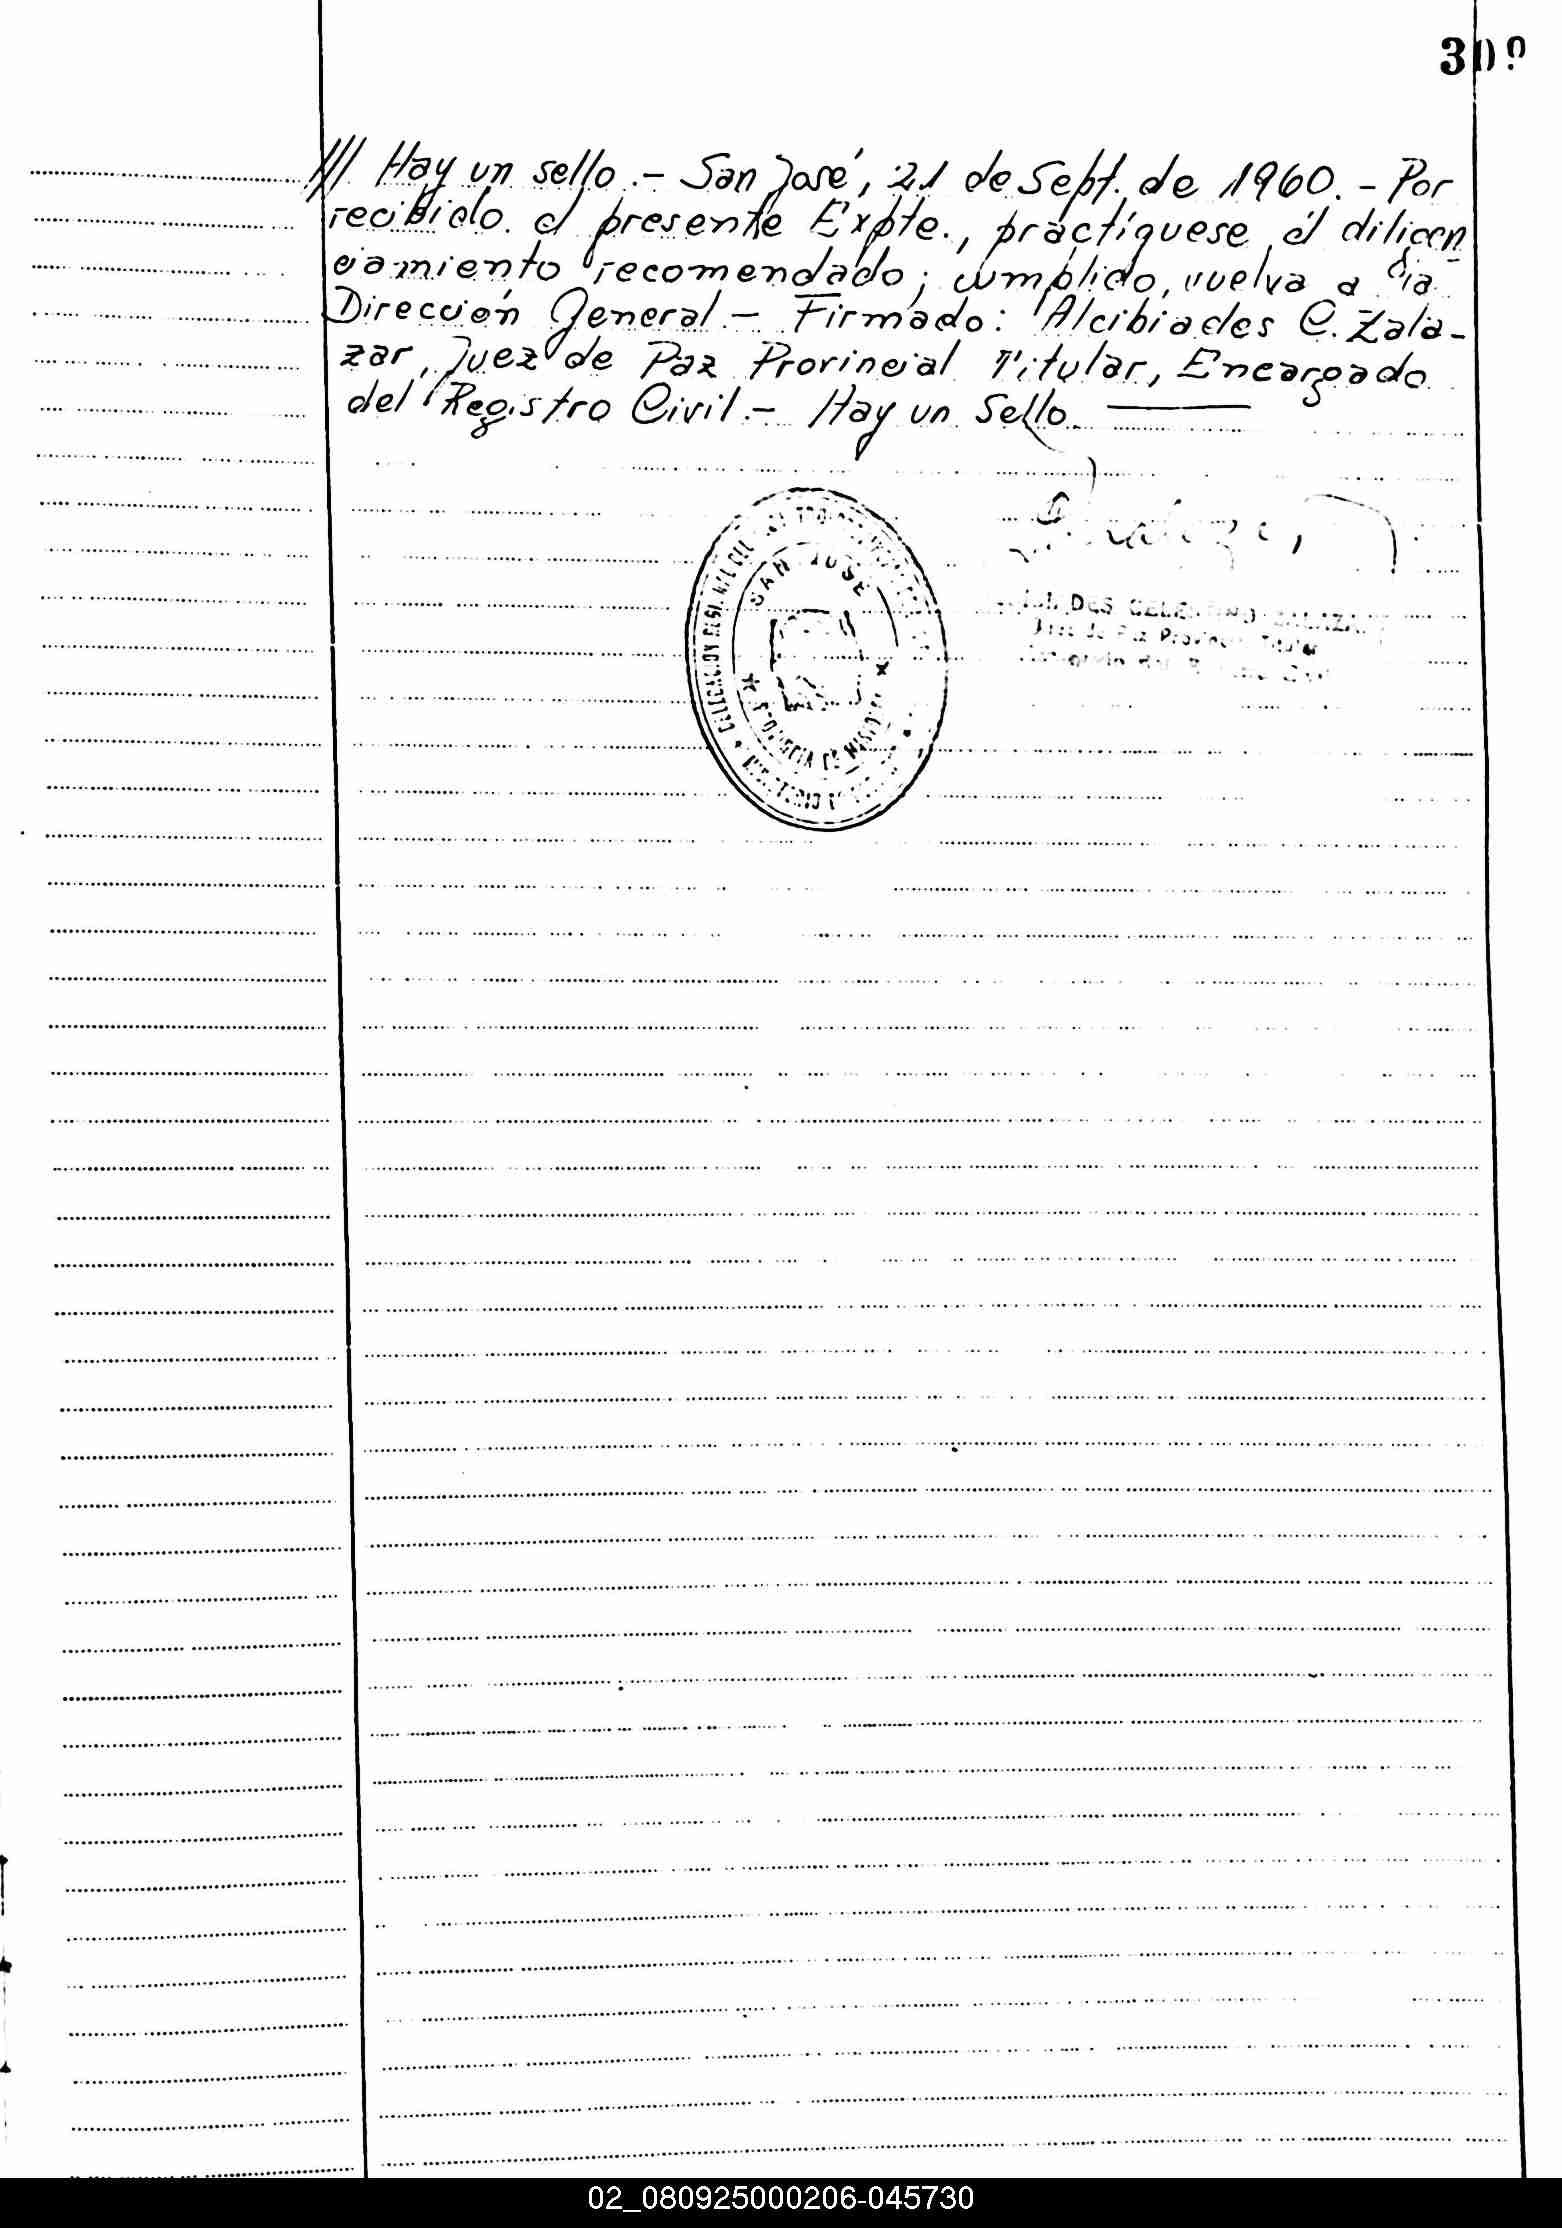 309
/// Hay un sello.- San José, 21 de Sept. de 1960.- Por
recibido el presente Expte., practíquese el diligen
ciamiento recomendado; cumplido, vuelva a la
Dirección General.- Firmado: Alcibiades C. Zala-
zar, Juez de Paz Provincial Titular, Encargado
del Registro Civil.- Hay un Sello.
SAN JOSE
PROVINCIA DE MISIONES
DES CELESTINO ZALAZAR
Juez de Paz Provincial Titular
Civil
02_080925000206-045730